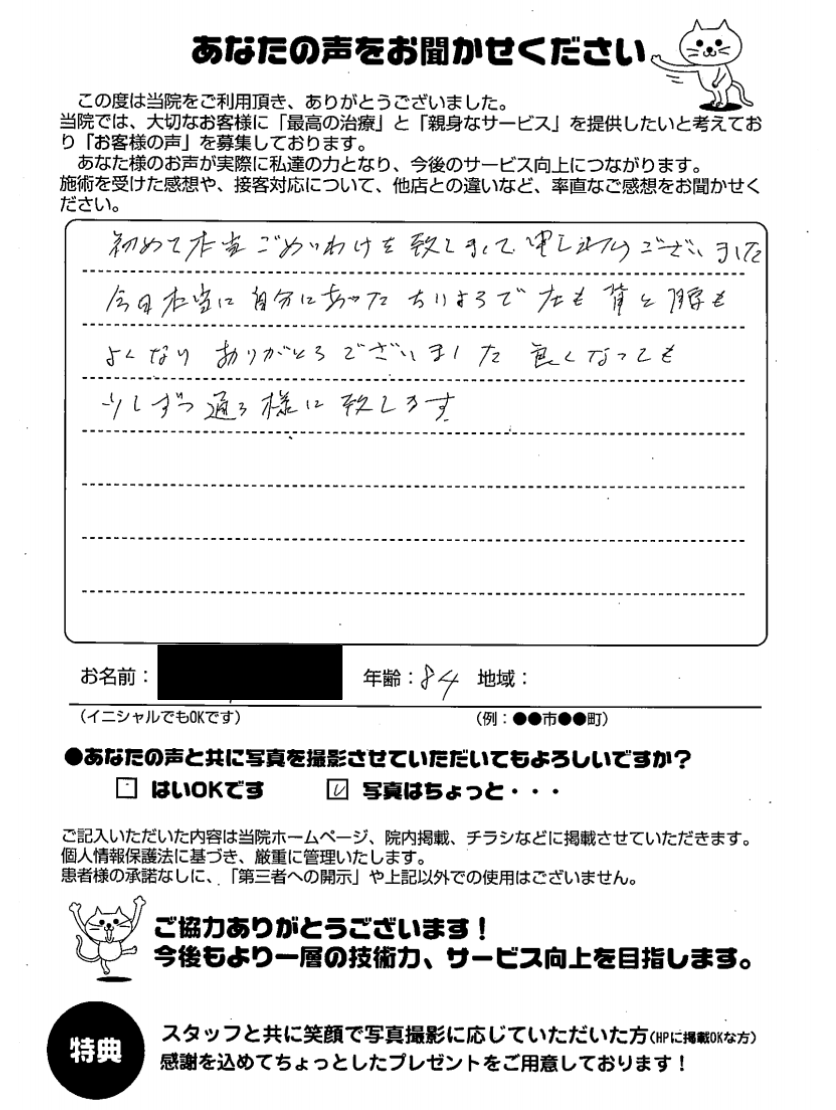 あなたの声をお聞かせください
この度は当院をご利用頂き、ありがとうございました。
当院では、大切なお客様に「最高の治療」と「親身なサービス」を提供したいと考えてお
り「お客様の声」を募集しております。
あなた様のお声が実際に私達の力となり、今後のサービス向上につながります。
施術を受けた感想や、接客対応について、他店との違いなど、率直なご感想をお聞かせく
ださい。
初めて本当ごめいわけを致しまして申しわけございました
今日本当に自分にあったちりょうで 左も 背と腰も
よくなり ありがとうございました 良くなっても
少しずつ通う様に致します
お名前： 年齢：84 地域：
（イニシャルでもOKです） （例：●●市●●町）
●あなたの声と共に写真を撮影させていただいてもよろしいですか？
はいOKです 写真はちょっと・・・
ご記入いただいた内容は当院ホームページ、院内掲載、チラシなどに掲載させていただきます。
個人情報保護法に基づき、厳重に管理いたします。
患者様の承諾なしに、「第三者への開示」や上記以外での使用はございません。
ご協力ありがとうございます！
今後もより一層の技術力、サービス向上を目指します。
特典
スタッフと共に笑顔で写真撮影に応じていただいた方（HPに掲載OKな方）
感謝を込めてちょっとしたプレゼントをご用意しております！